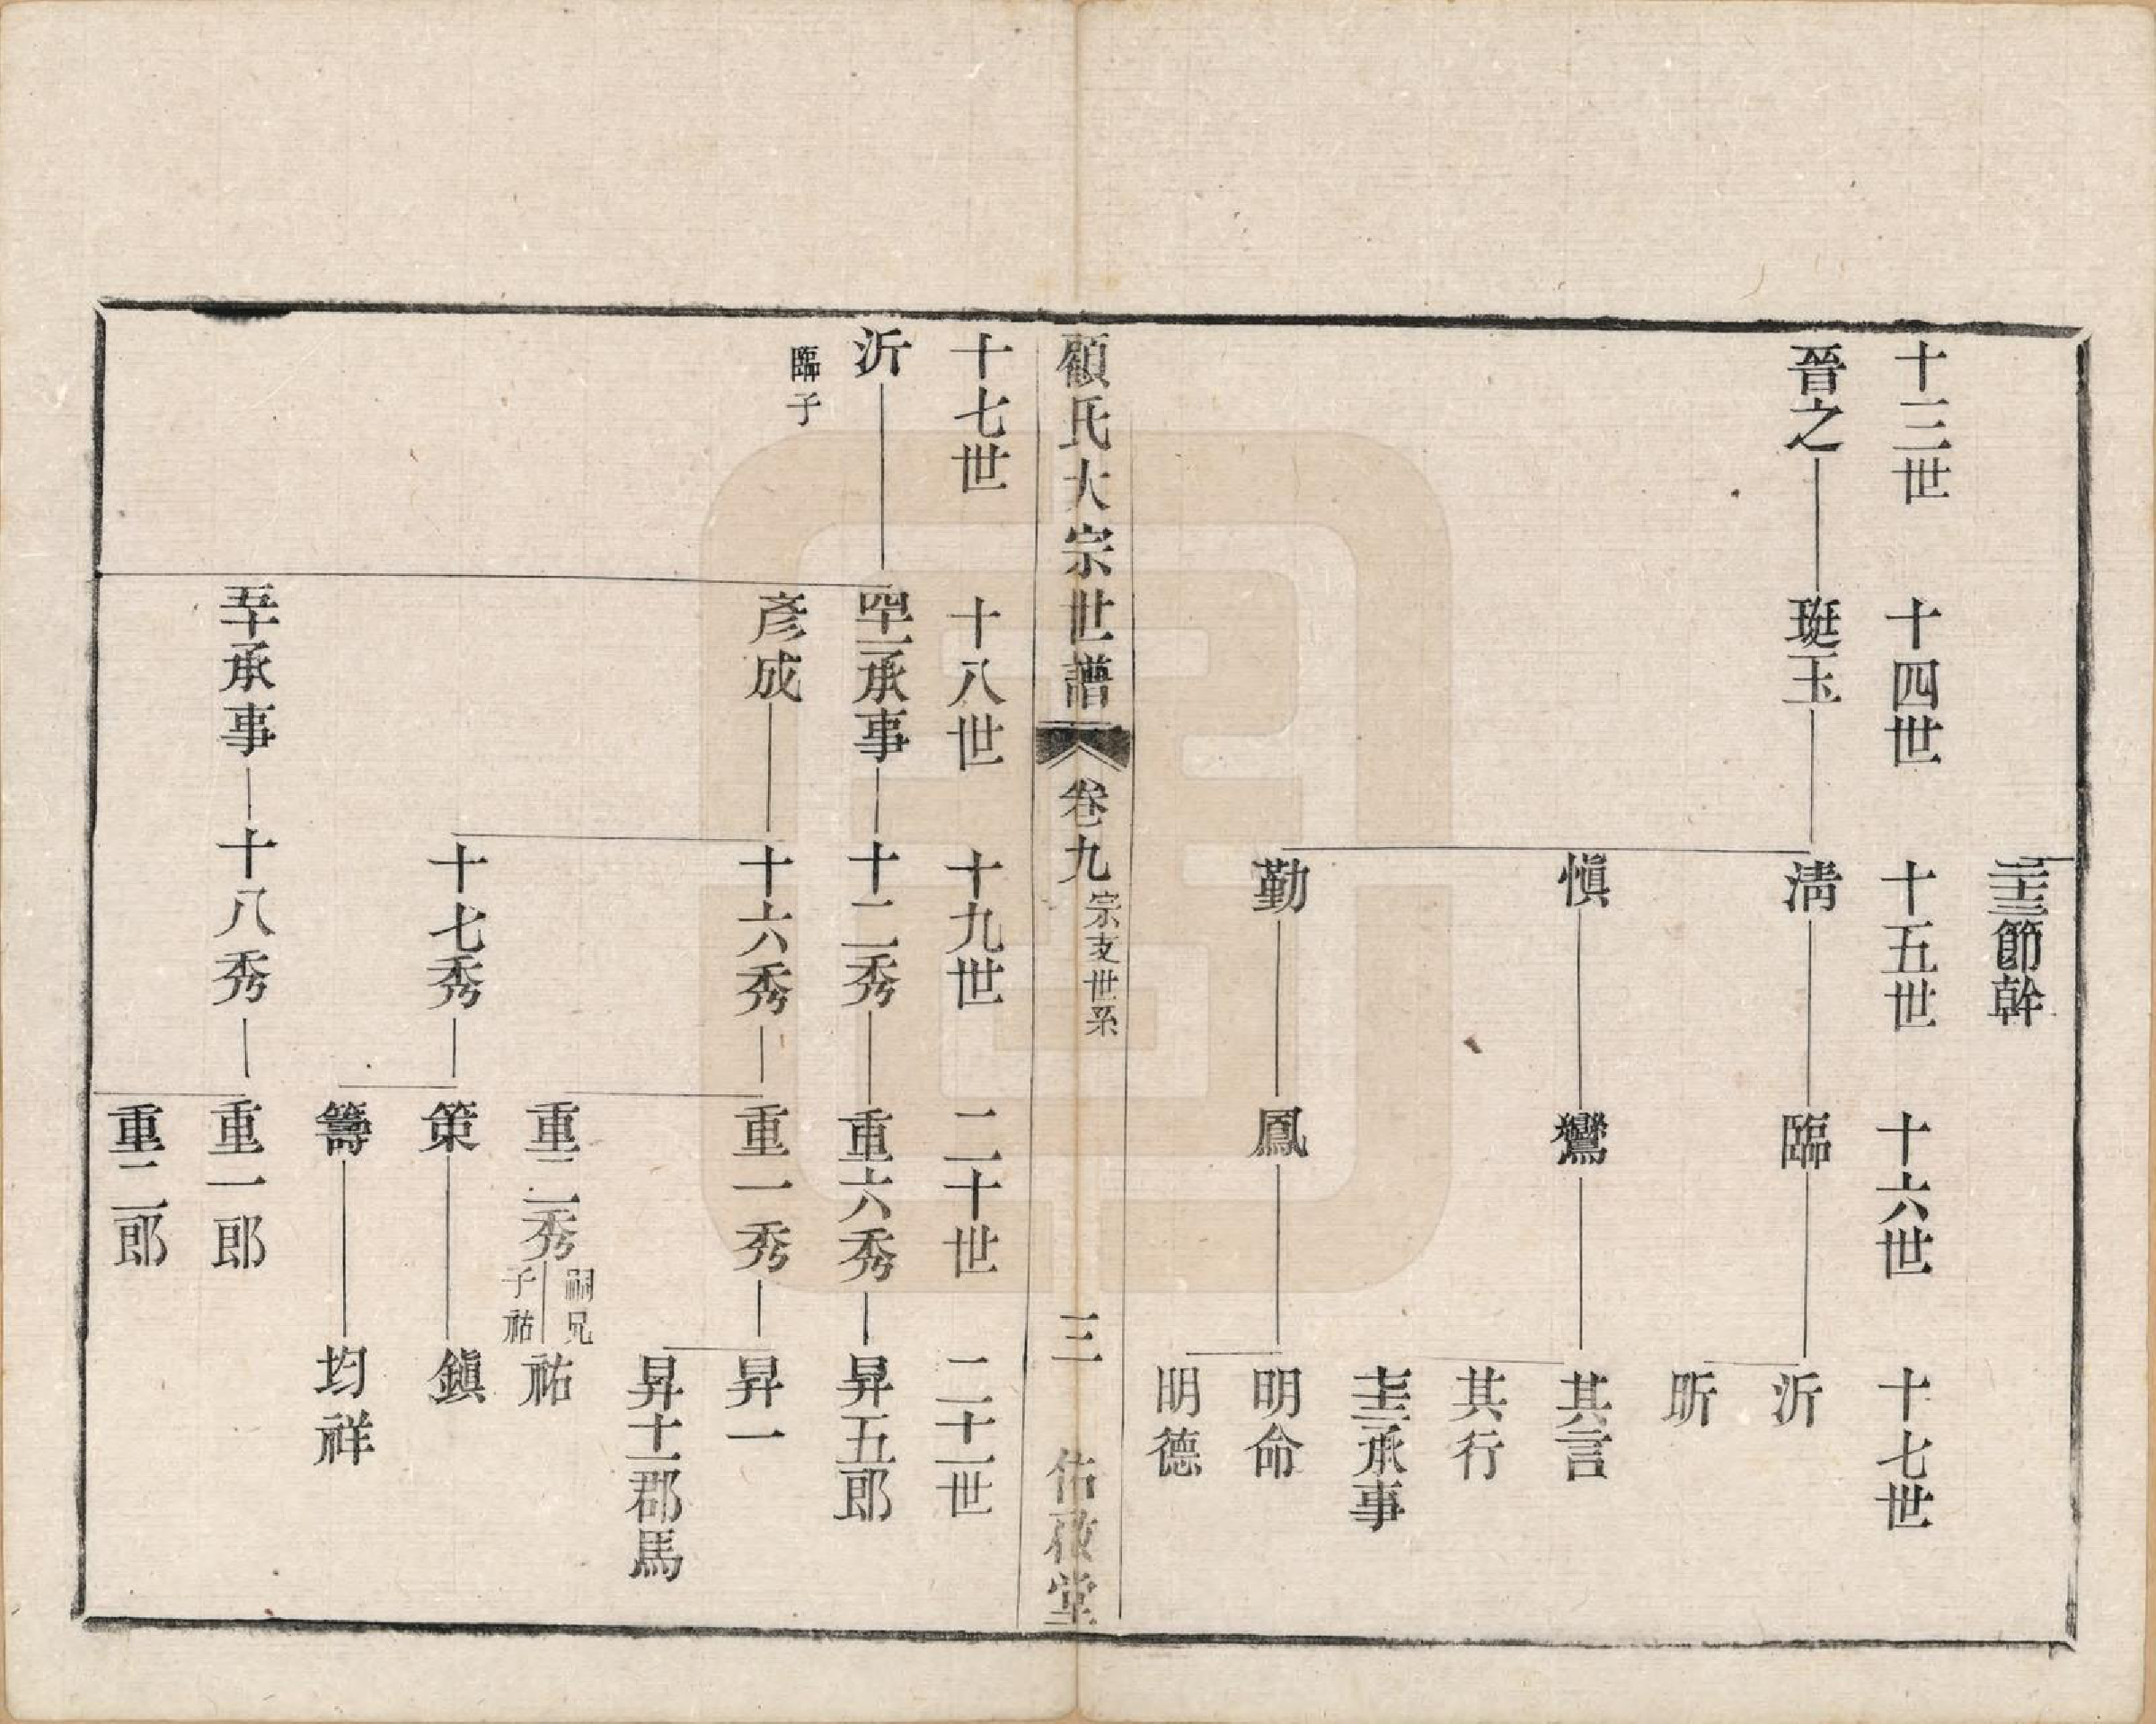 二十三節幹
十三世　十四世　十五世　十六世　十七世
晉之　珽玉　清　臨　沂
昕
慎　鸞　其言
其行
十三承事
勤　鳳　明命
明德
顧氏大宗世譜　卷九　宗支世系　三　佑啟堂
十七世　十八世　十九世　二十世　二十一世
沂　四十一承事　十二秀　重六秀　昇五郎
臨子　彥成　十六秀　重一秀　昇一
昇十一郡馬
重二秀　嗣兄子祐　祐
十七秀　策　鎮
籌　均祥
五十承事　十八秀　重一郎
重二郎